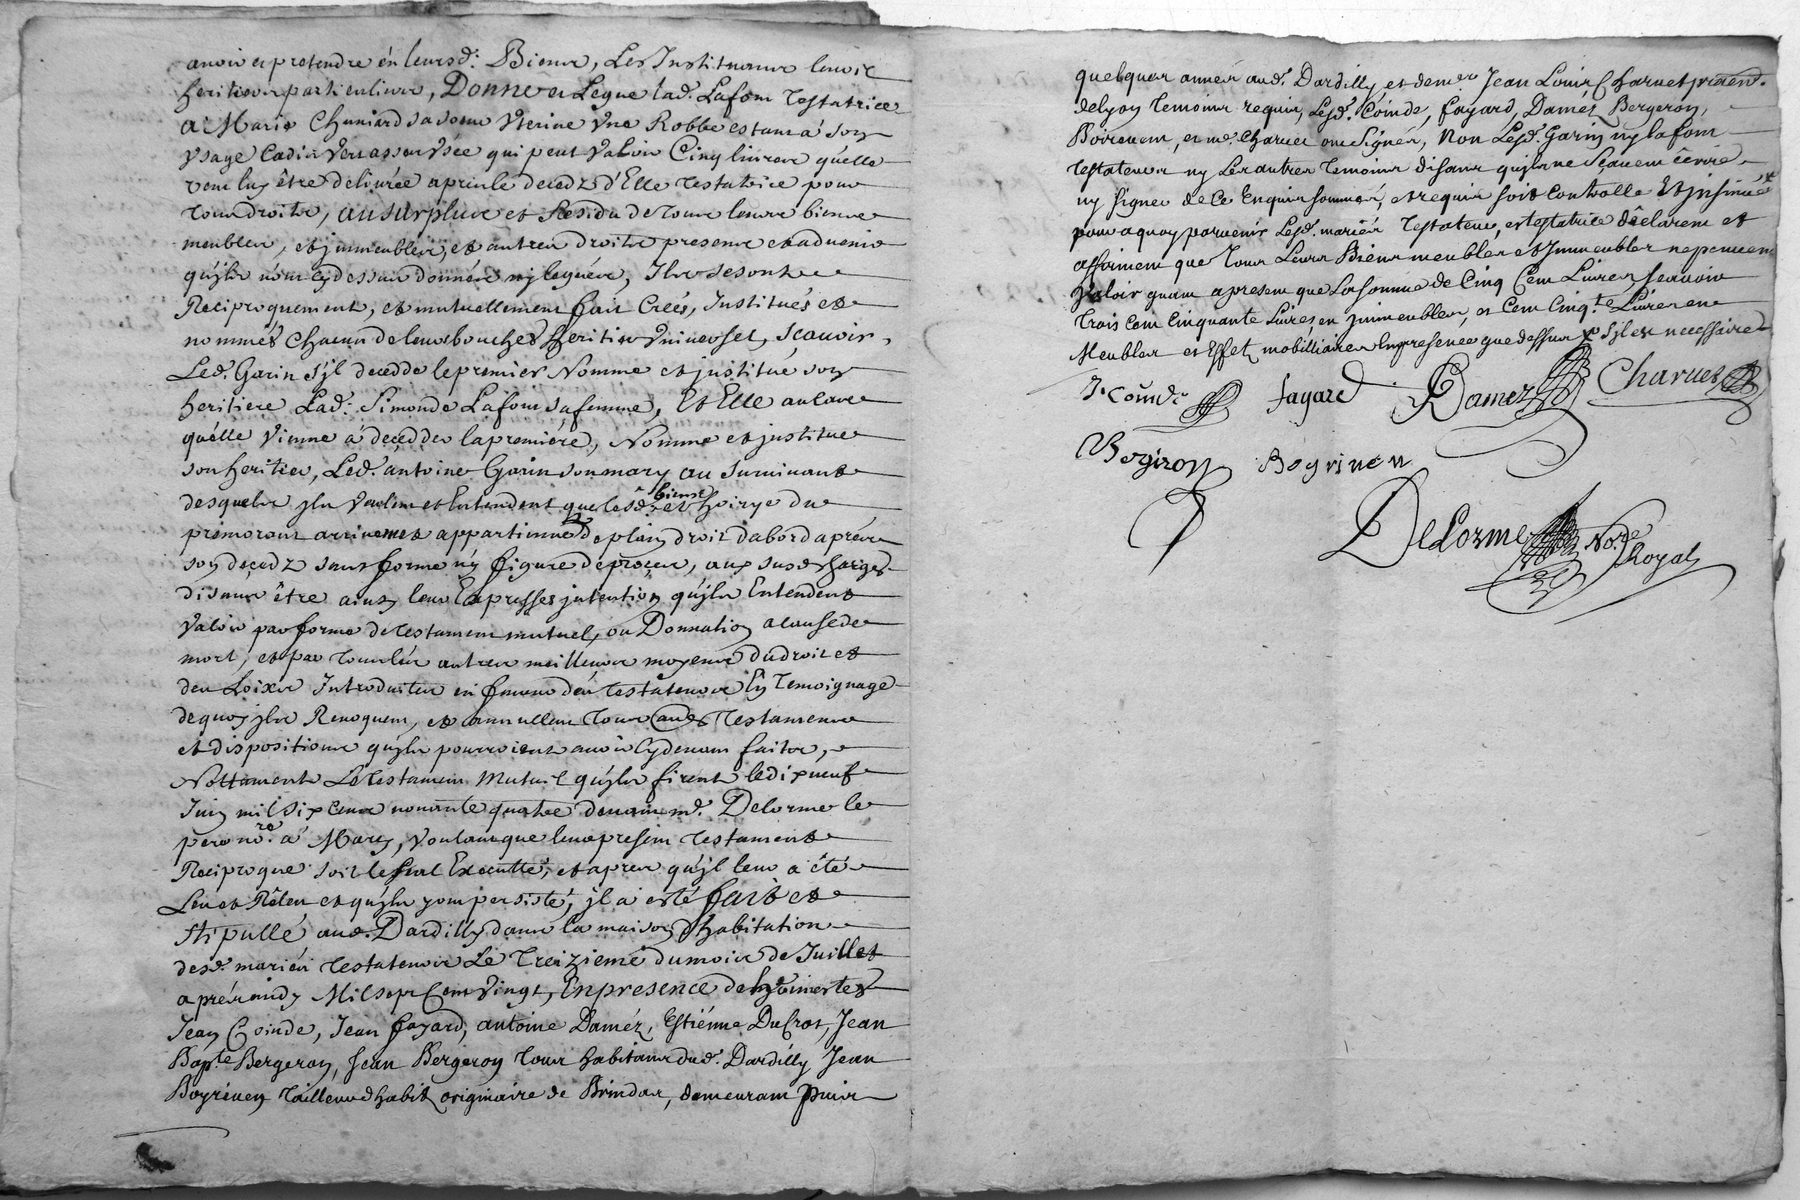 avoir et pretendre en leursd: Biens, Les Instituans leurs
heritiers particuliers, Donne et Legue lad. Lafont Testatrice
A Marie Chuniard sa soeur Uterine Une Robbe estant à son
Usage Cadis Vert assez Usée qui peut Valoir Cinq livres qu'elle
veut luy être delivrée apres le decedz d'Elle Testatrice pour
Tous droits, au surplus et Residu de Tous leurs biens
meubles, et immeubles, et autres droits presens et advenir
qu'jls n'ont cy dessus donnés ny legués, Jls se sont
Reciproquement, et mutuellement fait Creés, Institués et
nommés Chacun de leurs bouches heritier Universel, scavoir,
Led. Garin s'jl decedde le premier Nomme et jnstitue son
heritiere Lad: Simonde Lafont sa femme, Et Elle au cas
qu'elle Vienne à decedder la premiére, Nomme et jnstitue
son heritier, Led. antoine Garin son mary au survivant
desquels jls Veulent et Entendent que lesd. biens et hoirye du
premorant arrivent et appartiennent de plein droit d'abord apres
son decedz sans forme ny figure de proces, aux susd. charges
disant être ainsy leur Expresses jntention qu'jls Entendent
Valoir par forme de testament mutuel, ou Donnation a cause de
mort, et par tous les autres meilleurs moyens du droit et
des Loix Introduites en faveur des testateurs En Temoignage
de quoy jls Revoquent, et annullent tous autres Testamens
et dispositions qu'jls pourroient avoir cy devant faites,
Nottament Le testament Mutuel qu'jls firent le dix neuf
Juin mil six cens nonante quatre devant me. Delorme le
pere nore. à Marcy, Voulant que leur present testament
Reciproque soit le seul Executté, et apres qu'jl leur a êté
Leu et Rêleu et qu'jls y ont persisté, jl a esté fait et
stipullé aud. Dardilly dans la maison d'habitation
desd. mariés testateurs Le Treizieme du mois de Juillet
aprés midy Mil sept Cent Vingt, En presence de honnestes
Jean Coinde, Jean fayard, antoine Daméz, Estiénne DuCrot, Jean
Bapte. Bergeron, Jean Bergeron tous habitans dud. Dardilly Jean
Boyriven tailleur d'habit originaire de Brindas, demeurant puis
quelques années aud. Dardilly et de mer Jean Louis Charvet
de Lyon temoins requis, Lesd. Coinde, fayard, Damez, Bergeron,
Boiriven, et me. Charvet ont Signés, Non Lesd. Garin ny lafont
testateurs ny Les autres temoins disans qu'jls ne Sçavent êcrire
ny signer de Ce Enquis sommés, et requis soit Controllé Et jnsinué
pour a quoy parvenir Lesd. mariés Testateur, et testatrice dêclarent et
affirment que Tous Leurs Biens meubles et Immeubles ne peuvent
Valoir quant a present que La somme de Cinq Cent Livres scavoir
Trois cent cinquante livres en jmmeubles, et Cent Cinqte. Livres en
Meubles et Effetz mobilliaires En presence que dessus s'jl est necessaire
J. Coinde fayard Damez Charvet
Bergiron Boyriven
DeLorme Nore. Royal